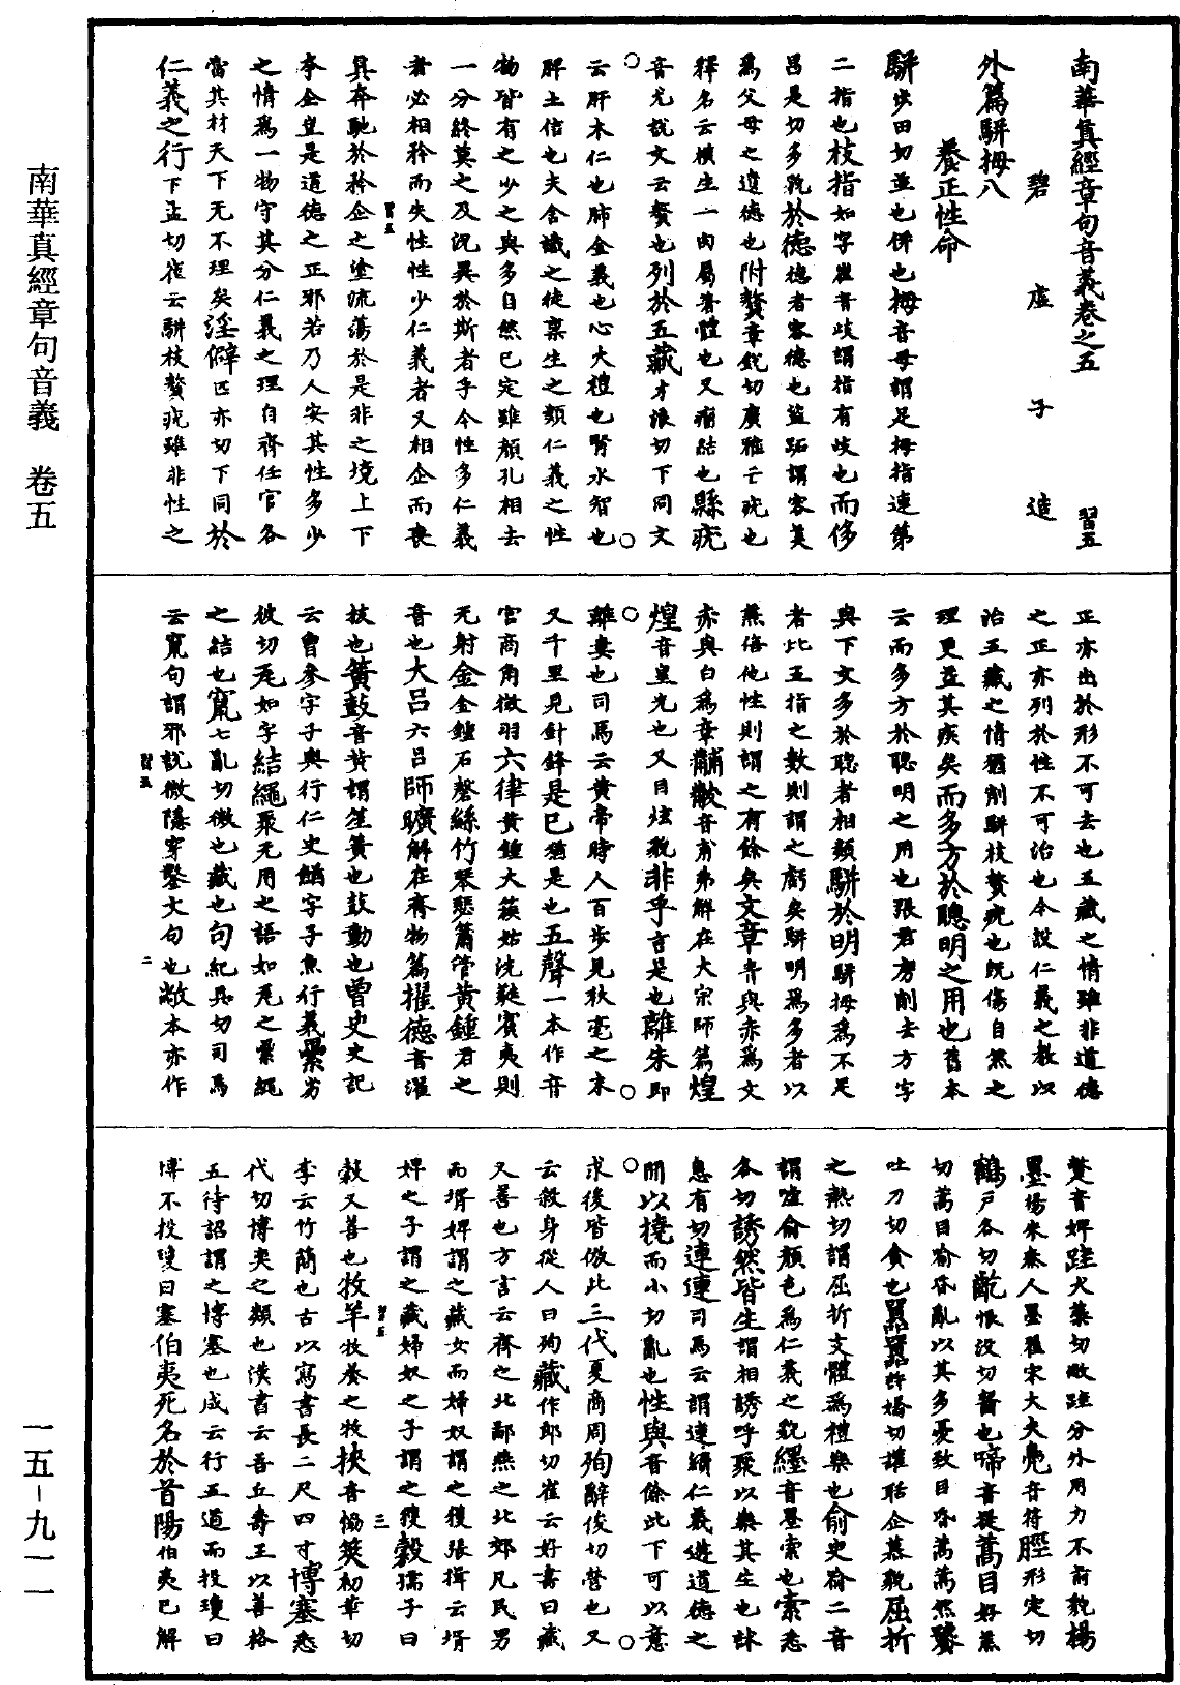 南華真經章句音義卷之五　習五
碧虛子造
外篇駢拇八
養正性命
駢步田切並也併也拇音母謂足拇指連第
二指也枝指如字崔音歧謂指有歧也而侈
呂是切多貌於德德者容德也盜跖謂容美
為父母之遺德也附贅章銳切廣雅云疣也
釋名云橫生一肉屬著體也又瘤結也縣疣
音尤說文云贅也列於五藏才浪切下同文
云肝木仁也肺金義也心火禮也腎水智也
脾土信也夫含識之徒稟生之類仁義之性
物皆有之少之與多自然已定雖顏孔相去
一分終莫之及況異於斯者乎今性多仁義
者必相矜而失性性少仁義者又相企而喪
真奔馳於矜企之塗流蕩於是非之境上下
夸企豈是道德之正邪若乃人安其性多少
之情為一物守其分仁義之理自齊任官各
當其材天下无不理矣淫僻匹亦切下同於
仁義之行下孟切崔云駢枝贅疣雖非性之
正亦出於形不可去也五藏之情雖非道德
之正亦列於性不可治也今設仁義之教以
治五藏之情猶削駢枝贅疣也既傷自然之
理更益其疾矣而多方於聰明之用也舊本
云而多方於聰明之用也張君房削去方字
與下文多於聰者相類駢於明駢拇為不足
者此五指之數則謂之虧矣駢明為多者以
無倍他性則謂之有餘矣文章青與赤為文
赤與白為章黼黻音甫弗解在大宗師篇煌
煌音皇光也又目炫貌非乎言是也離朱即
離婁也司馬云黃帝時人百步見秋毫之末
又千里見針鋒是已猶是也五聲一本作音
宮商角徵羽六律黃鍾大蔟姑洗蕤賓夷則
无射金金鍾石磬絲竹琴瑟簫管黃鍾君之
音也大呂六呂師曠解在齊物篇擢德音濯
拔也簧鼓音黃謂笙簧也鼓動也曾史史記
云曾參字子輿行仁史鰌字子魚行義纍劣
彼切瓦如字結繩聚无用之語如瓦之纍繩
之結也竄七亂切微也藏也句紀具切司馬
云竄句謂邪說微隱穿鑿文句也敝本亦作
習五　二
蹩音婢跬犬蘂切敝跬分外用力不前貌楊
墨楊朱秦人墨翟宋大夫鳧音符脛形定切
鶴戶各切齕恨沒切齧也啼音提蒿目好羔
切蒿目眘昏亂以其多憂致目昏蒿蒿然饕
吐刀切貪也囂囂許嬌切讙聒企慕貌屈折
之熱切謂屈折支體為禮樂也俞史喻二音
謂呴俞顏色為仁義之貌纆音墨索也索悉
各切誘然皆生謂相誘呼聚以樂其生也訹
息有切連連司馬云謂連續仁義遊道德之
間以撓而小切亂也性與音餘此下可以意
求後皆倣此三代夏商周殉辭俊切營也又
云殺身從人曰殉臧作郎切崔云好書曰臧
又善也方言云齊之北鄙燕之北郊凡民男
而壻婢謂之臧女而婦奴謂之獲張揖云壻
婢之子謂之臧婦奴之子謂之獲穀孺子曰
穀又善也牧羊牧養之牧挾音協筴初革切
李云竹簡也古以寫書長二尺四寸博塞悉
代切博奕之類也漢書云吾丘壽王以善格
五待詔謂之博塞也成云行五道而投瓊曰
博不投瓊曰塞伯夷死名於首陽伯夷已解
習五　三
南華真經章句音義　卷五
一五－九一一